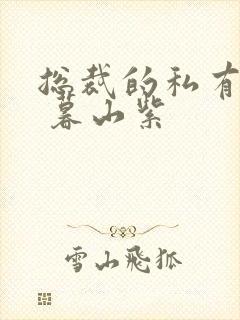 总裁的私有
暮山紫
雪山飛狐